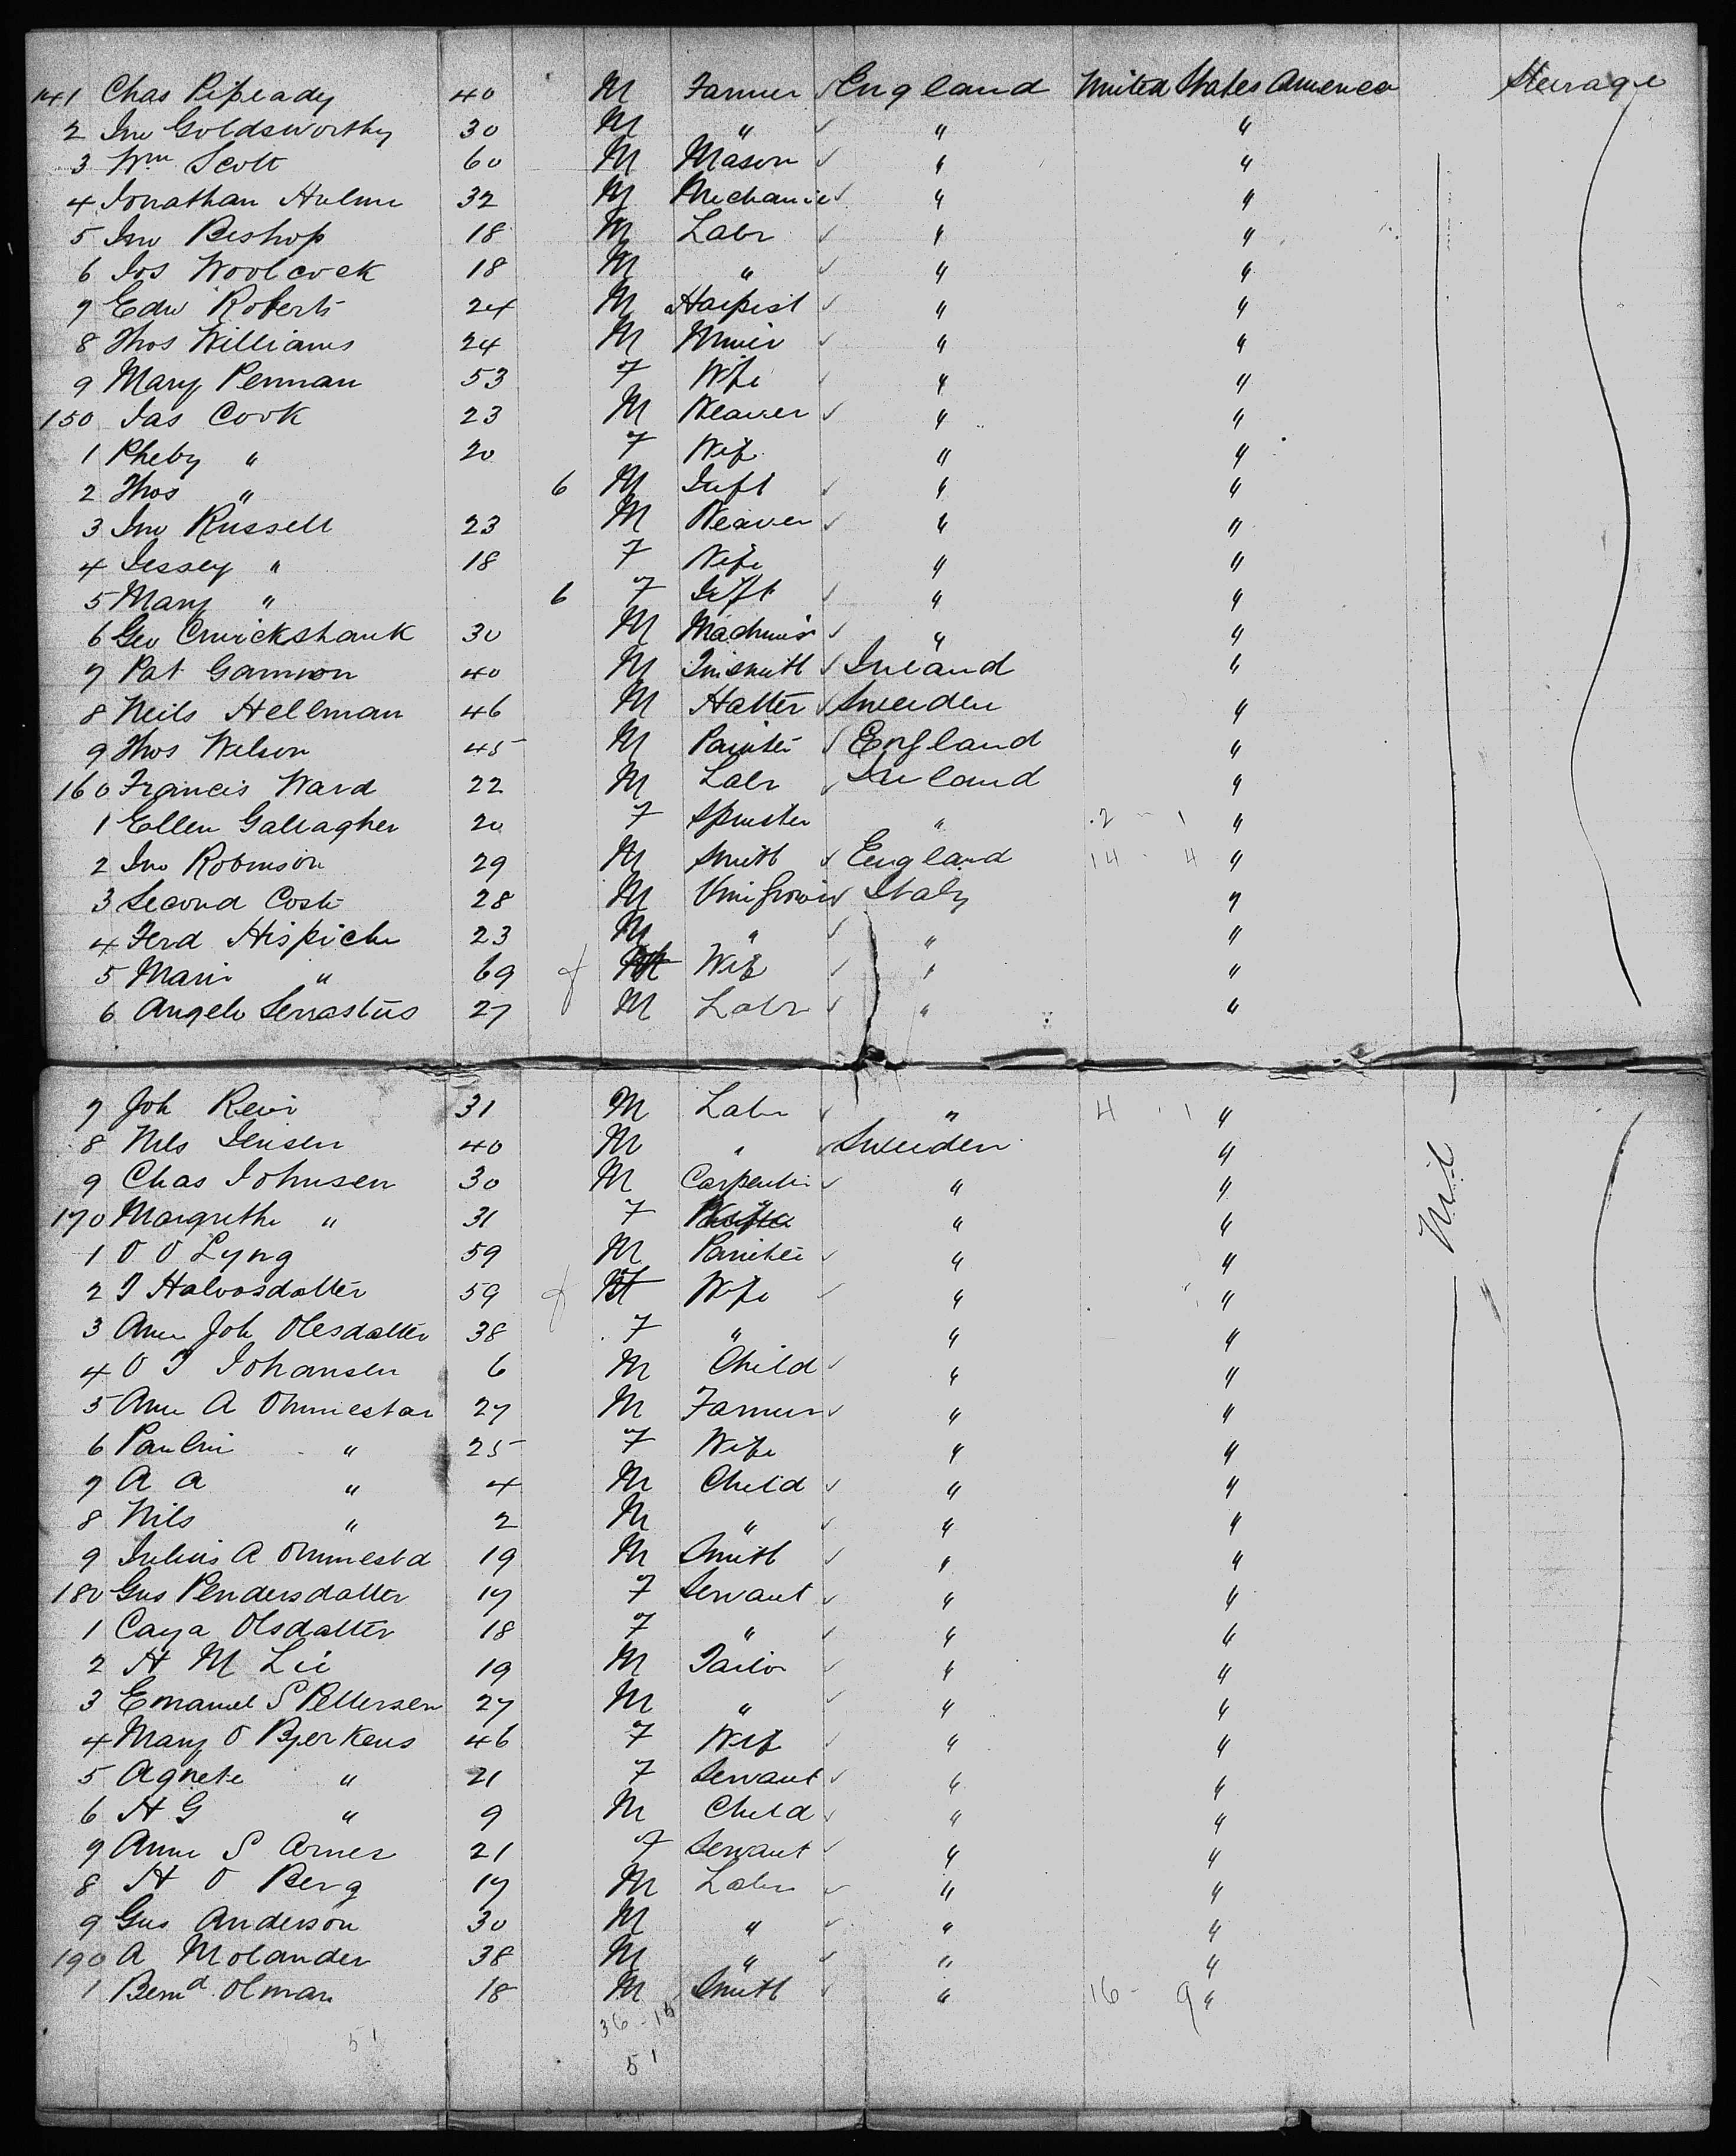 141 Chas Pipeady 40 M Farmer England United States America Steerage
2 Jno Goldsworthy 30 M " " "
3 Wm Scott 60 M Mason " "
4 Jonathan Hulme 32 M Mechanic " "
5 Jno Bishop 18 M Labr " "
6 Jos Woolcock 18 M " " "
7 Edw Roberts 24 M Harpist " "
8 Thos Williams 24 M Miner " "
9 Mary Penman 53 F Wife " "
150 Jas Cook 23 M Weaver " "
1 Pheby " 20 F Wife " "
2 Thos " 6 M Inft " "
3 Jno Russell 23 M Weaver " "
4 Jessey " 18 F Wife " "
5 Mary " 6 F Inft " "
6 Geo Cruickshank 30 M Machinist " "
7 Pat Gannon 40 M Tinsmith Ireland "
8 Neils Hellman 46 M Hatter Sweeden "
9 Thos Wilson 45 M Painter England "
160 Francis Ward 22 M Labr Ireland "
1 Ellen Gallagher 20 F Spinster " 2 - 1 "
2 Jno Robinson 29 M Smith England 14 - 4 "
3 Second Costi 28 M Italy "
4 Ferd Hispiche 23 M " " "
5 Marie " 69 f Wife " "
6 Angelo Serrastus 27 M Labr " "
7 Joh Revi 31 M Labr " 4 1 "
8 Nils Jensen 40 M " Sweeden "
9 Chas Johnsen 30 M Carpenter " "
170 Margrethe " 31 F Wife " "
1 O O Lyng 59 M Painter " "
2 T Halvosdatter 59 f Wife " "
3 Ane Joh Olesdatter 38 F " " "
4 O T Johansen 6 M Child " "
5 Ane A Ommestad 27 M Farmer " "
6 Pauline " 25 F Wife " "
7 A A " 4 M Child " "
8 Nils " 2 M " " "
9 Julius A Ommestd 19 M Smith " "
180 Gus Pendersdatter 17 F Servant " "
1 Caya Olsdatter 18 F " " "
2 H M Lie 19 M Tailor " "
3 Emanuel S Pettersen 27 M " " "
4 Mary O Bjerkens 46 F Wife " "
5 Agnete " 21 F Servant " "
6 H G " 9 M Child " "
7 Anne S Arnes 21 F Servant " "
8 H O Berg 17 M Labr " "
9 Gus Anderson 30 M " " "
190 A Molander 38 M " " "
1 Bernd Olman 18 M Smith " 16 - 9 "
Nil
36 - 15
51 51